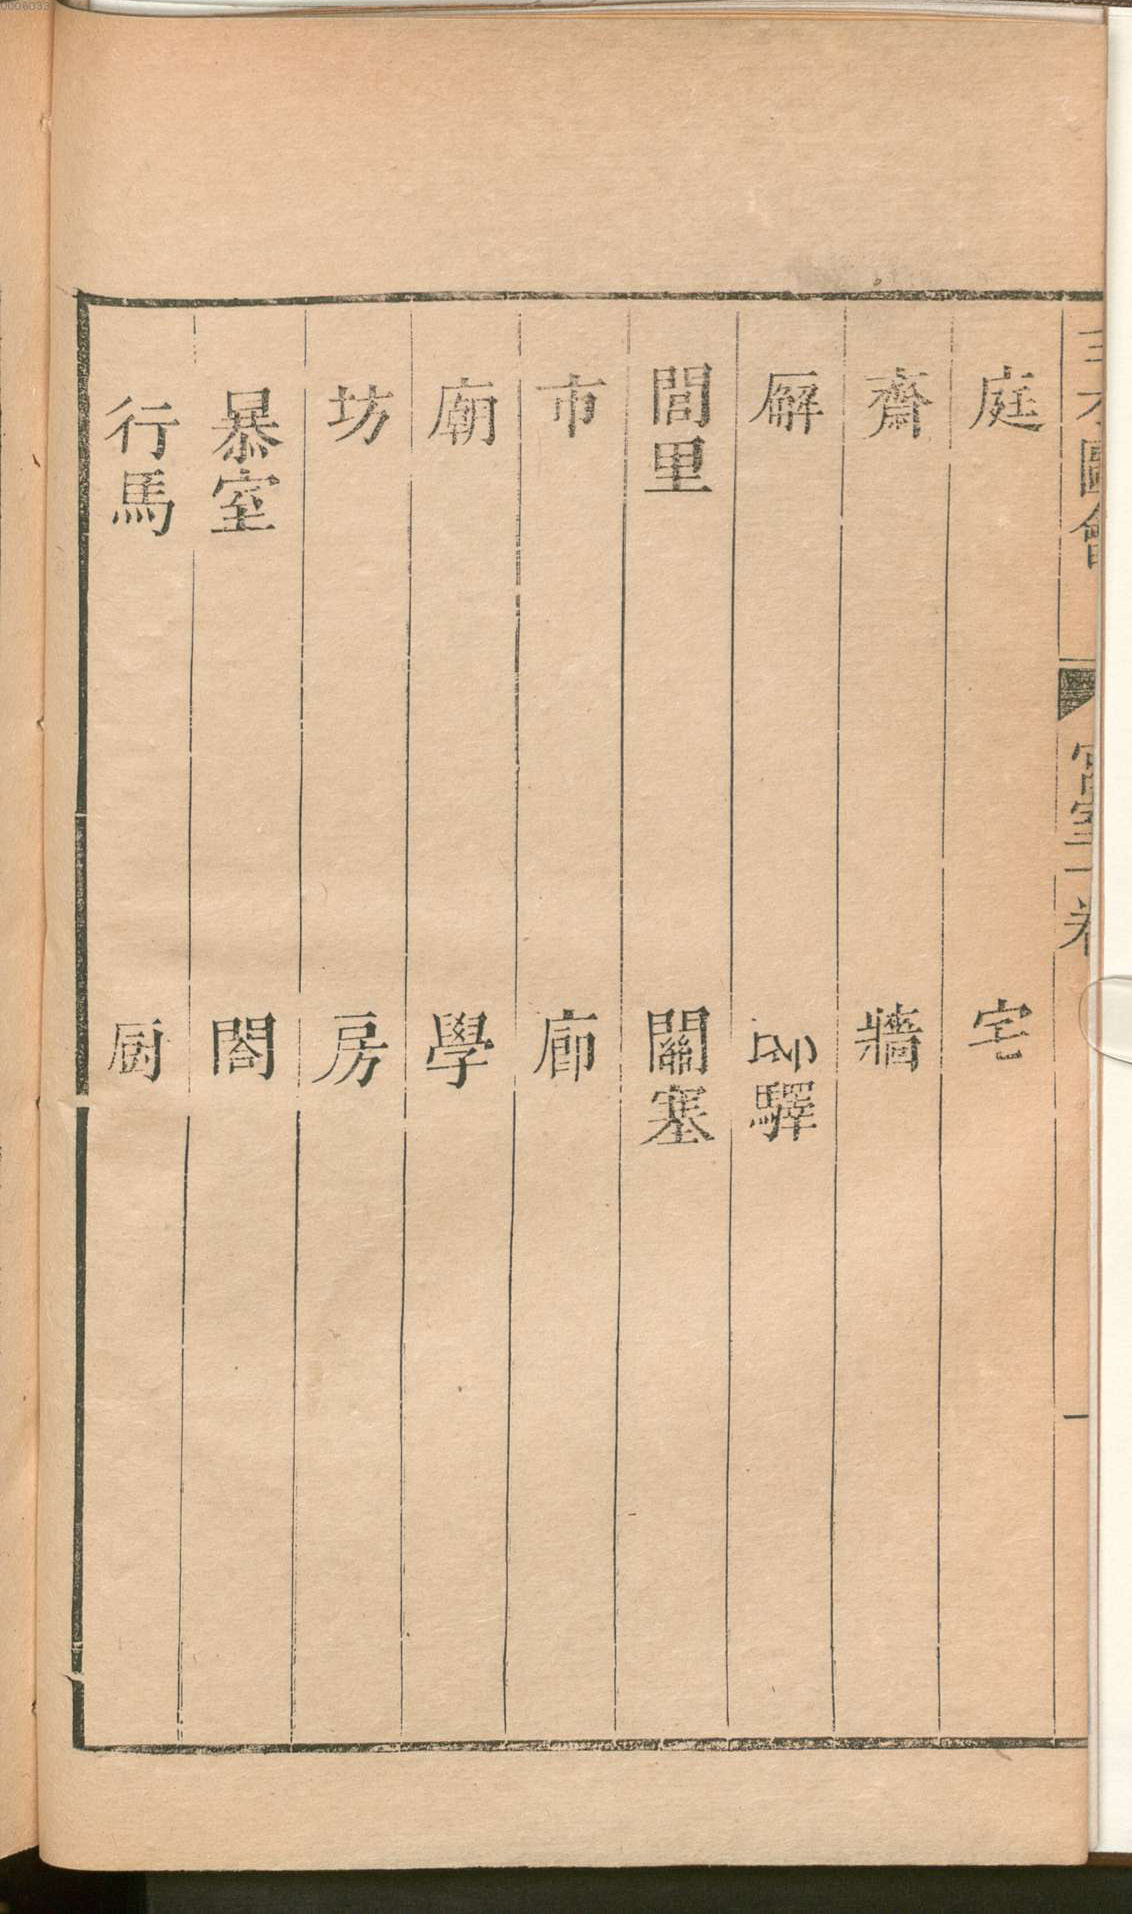 三才圖會
宮室一卷
一
庭
宅
齋
牆
廨
郵驛
閭里
關塞
市
廊
廟
學
坊
房
暴室
閤
行馬
厨